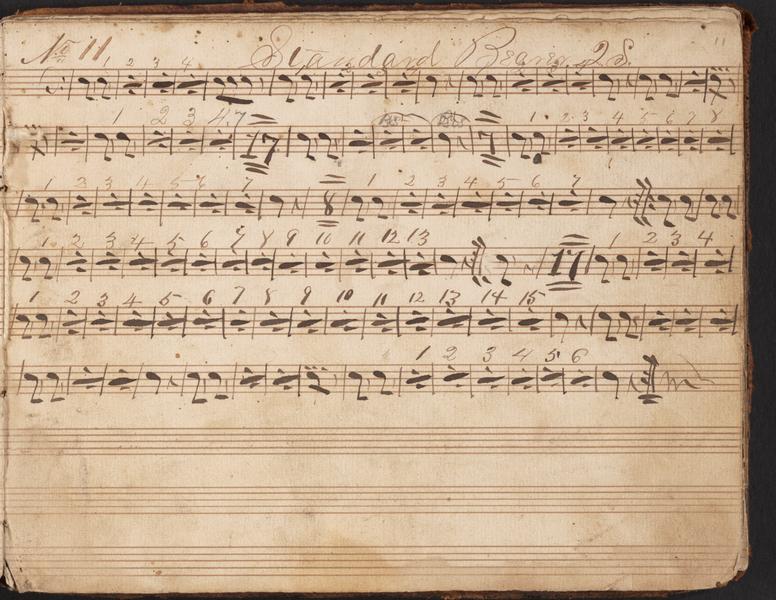 No 11 Standard Bearer 2S. 11
1 2 3 4
1 2 3 4 7 17 7 1 2 3 4 5 6 7 8
1 2 3 4 5 6 7 8 1 2 3 4 5 6 7
1 2 3 4 5 6 7 8 9 10 11 12 13 17 1 2 3 4
1 2 3 4 5 6 7 8 9 10 11 12 13 14 15
1 2 3 4 5 6